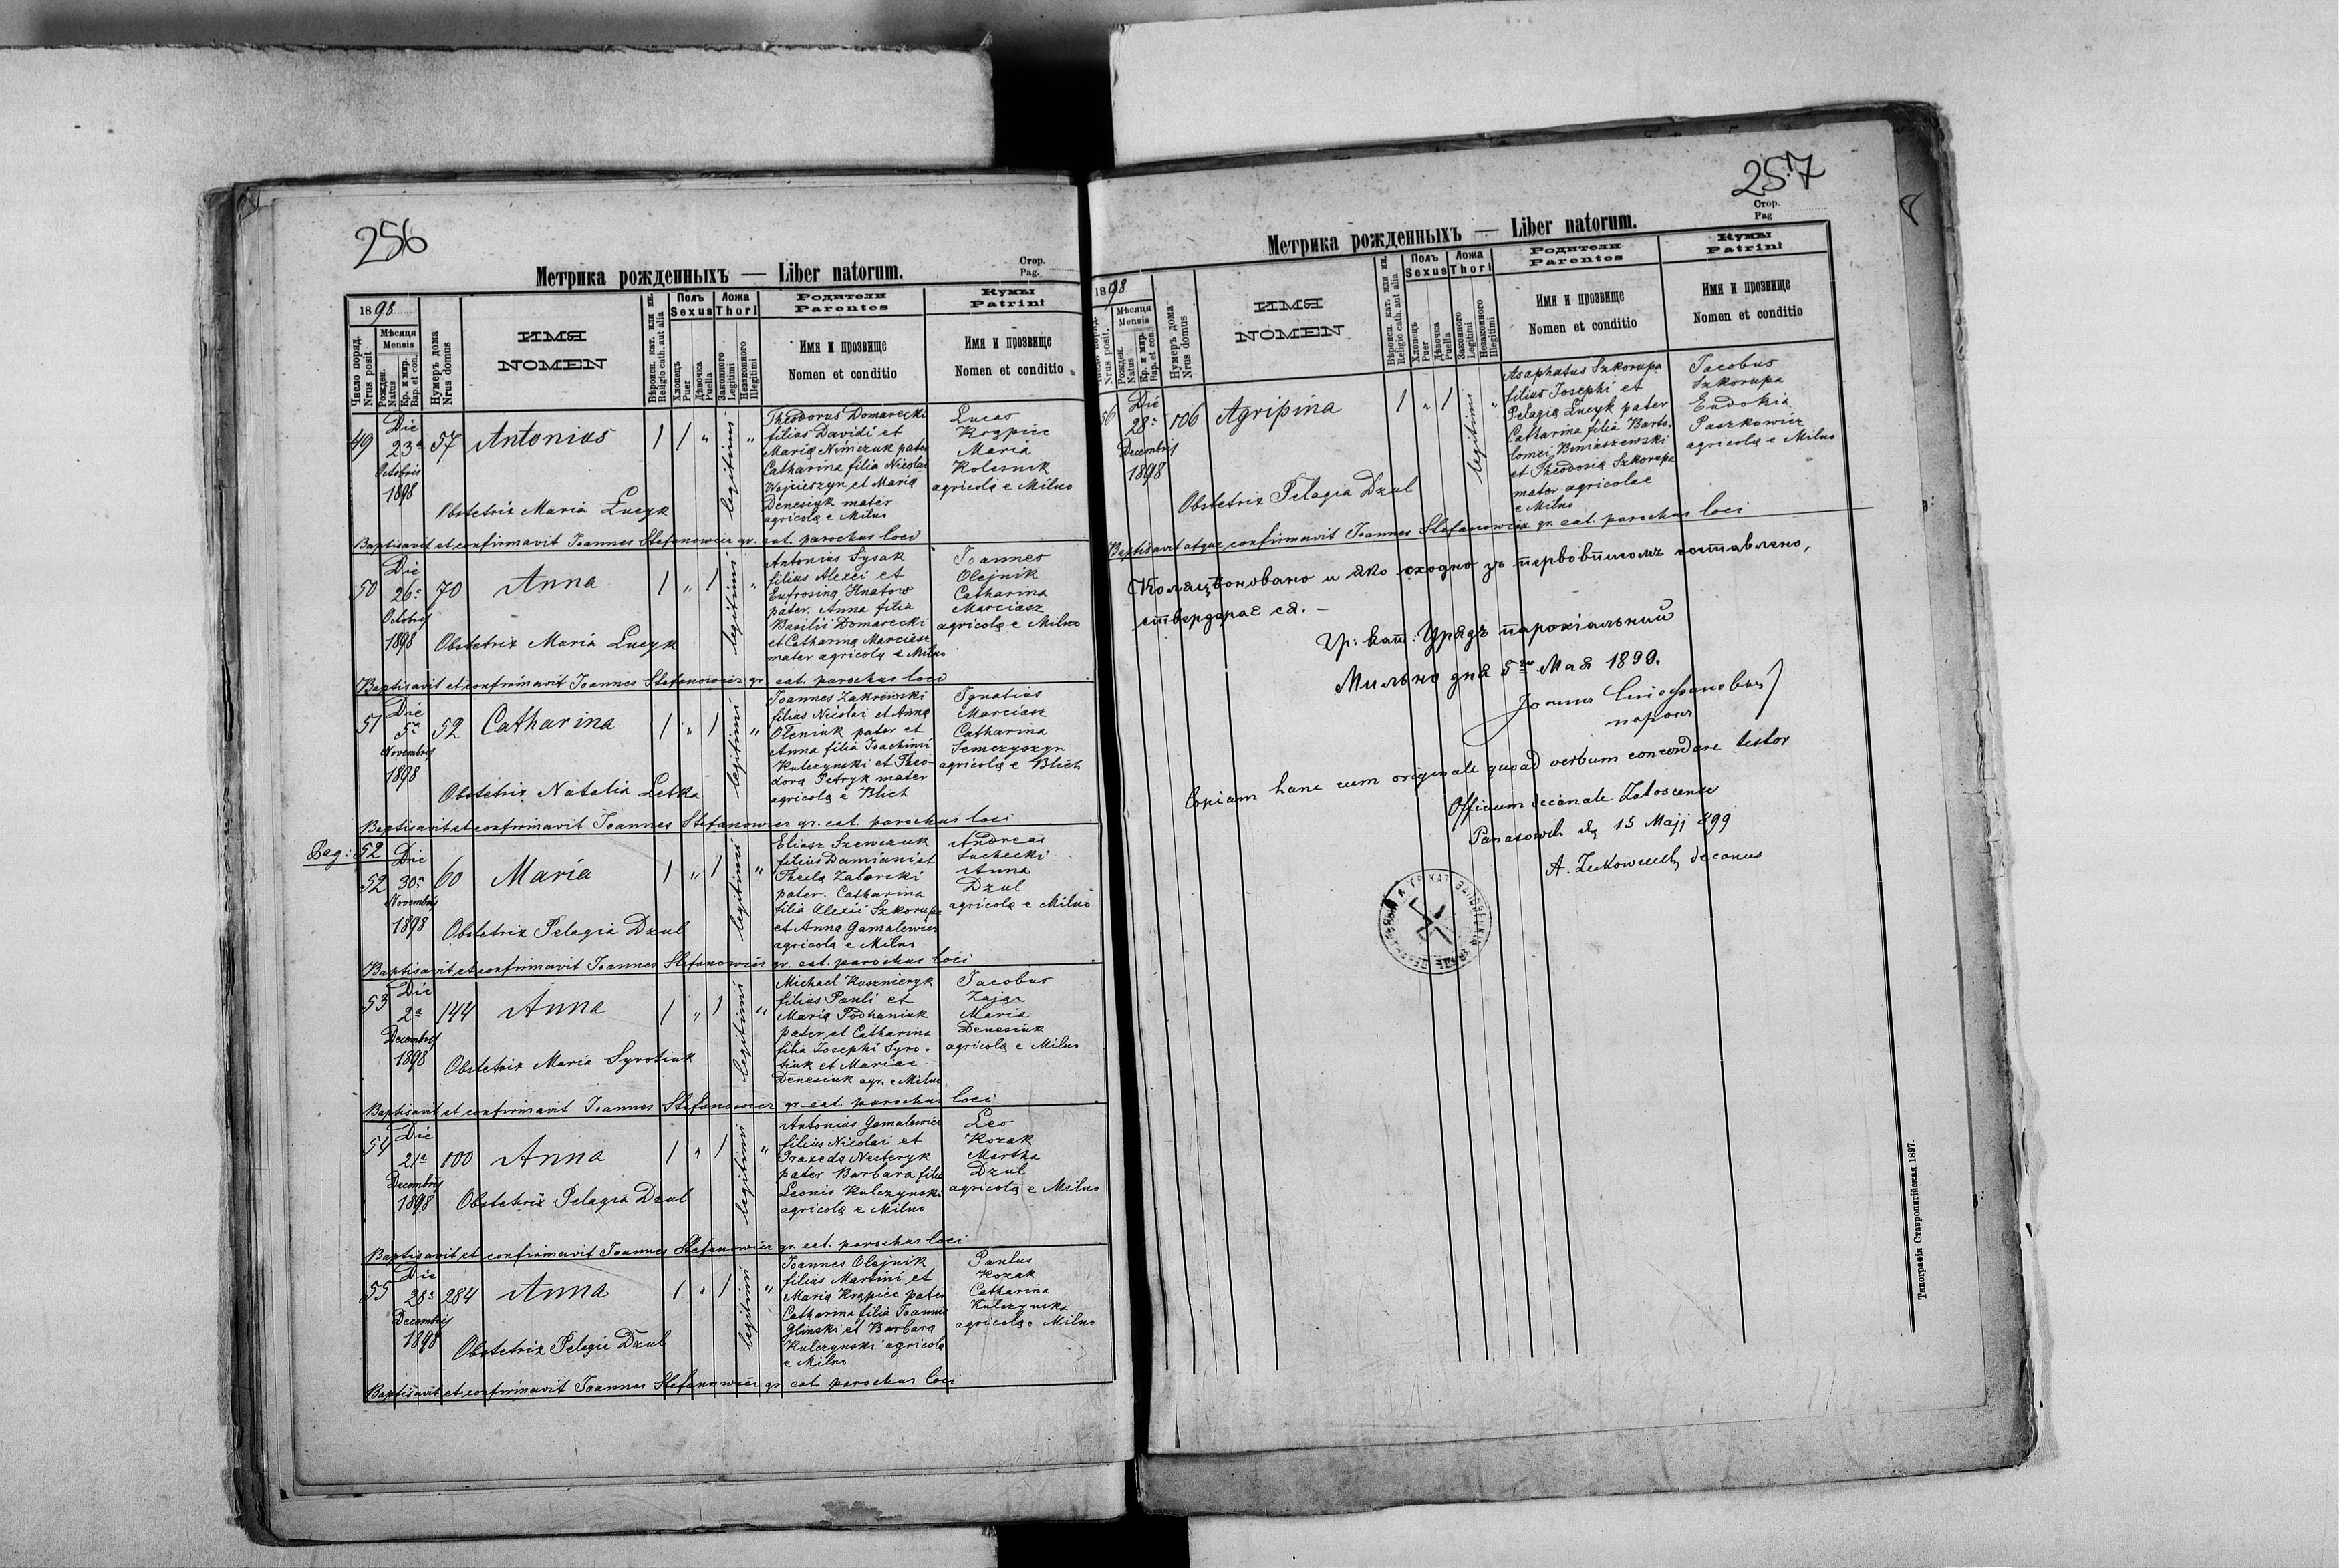 256
Метрика рожденныхъ — Liber natorum.
Стор.
Pag.
1898
Число поряд.
Nrus posit
Мѣсяця
Mensis
Рожден.
Natus
Кр. и мир.
Bap. et con.
Нумеръ дома
Nrus domus
ИМЯ
NOMEN
Вѣроисп. кат. или ин.
Religio cath. aut alia
Полъ
Sexus
Хлопець
Puer
Дѣвочка
Puella
Ложа
Thori
Законного
Legitimi
Незаконного
Illegitimi
Родители
Parentes
Имя и прозвище
Nomen et conditio
Кумы
Patrini
Имя и прозвище
Nomen et conditio
49
Die
23a
Octobris
1898
57
Antonius
1 1 "
legitimi
"
Theodorus Domarecki
filius Davidi et
Maria Nimczuk pater
Catharina filia Nicolai
Wojcieszyn et Maria
Denesiuk mater
agricolą e Milno
Lucas
Krąpiec
Maria
Kolesnik
agricolą e Milno
Obstetrix Maria Lucyk
Baptisavit et confirmavit Joannes Stefanowicz gr. cat. parochus loci
50
Die
26a
Octobris
1898
70
Anna
1 " 1
legitimi
"
Antonius Sysak
filius Alexei et
Eufrosina Hnatow
pater. Anna filia
Basilii Domarecki
et Catharina Marciasz
mater agricolą e Milno
Joannes
Olejnik
Catharina
Marciasz
agricolą e Milno
Obstetrix Maria Lucyk
Baptisavit et confirmavit Joannes Stefanowicz gr. cat. parochus loci
51
Die
5a
Novembris
1898
52
Catharina
1 " 1
legitimi
"
Joannes Zakrewski
filius Nicolai et Anna
Oleniuk pater et
Anna filia Joachimi
Kulczynski et Theo-
dora Petryk mater
agricolą e Blich
Ignatius
Marciasz
Catharina
Semczyszyn
agricolą e Blich
Obstetrix Natalia Letka
Baptisavit et confirmavit Joannes Stefanowicz gr. cat. parochus loci
Pag: 52
52
Die
30a
Novembris
1898
60
Maria
1 " 1
legitimi
"
Eliasz Szewczuk
filius Damiani et
Thecla Zaborski
pater. Catharina
filia Alexii Szkorupa
et Anna Gamalewicz
agricolą e Milno
Andreas
Suchecki
Anna
Dzul
agricolą e Milno
Obstetrix Pelagia Dzul
Baptisavit et confirmavit Joannes Stefanowicz gr. cat. parochus loci
53
Die
2a
Decembris
1898
144
Anna
1 " 1
legitimi
"
Michael Kusznieryk
filius Pauli et
Maria Podhaniuk
pater et Catharina
filia Josephi Syro-
tiuk et Mariae
Denesiuk agr. e Milno
Jacobus
Zając
Maria
Denesiuk
agricolą e Milno
Obstetrix Maria Syrotiuk
Baptisavit et confirmavit Joannes Stefanowicz gr. cat. parochus loci
54
Die
21a
Decembris
1898
100
Anna
1 " 1
legitimi
"
Antonius Gamalewicz
filius Nicolai et
Praxeda Nesteryk
pater Barbara filia
Leonis Kulczynski
agricolą e Milno
Leo
Kozak
Martha
Dzul
agricolą e Milno
Obstetrix Pelagia Dzul
Baptisavit et confirmavit Joannes Stefanowicz gr. cat. parochus loci
55
Die
28a
Decembris
1898
284
Anna
1 " 1
legitimi
"
Joannes Olejnik
filius Martini et
Maria Krąpiec pater
Catharina filia Joannis
Glinski et Barbara
Kulczynski agricolą
e Milno
Paulus
Kozak
Catharina
Kulczynska
agricolą e Milno
Obstetrix Pelagia Dzul
Baptisavit et confirmavit Joannes Stefanowicz gr. cat. parochus loci
257
Стор.
Pag
Метрика рожденныхъ — Liber natorum.
1898
Nrus posit.
Мѣсяця
Mensis
Рожден.
Natus
Кр. и мир.
Bap. et con.
Нумеръ дома
Nrus domus
ИМЯ
NOMEN
Вѣроисп. кат. или ин.
Religio cath. aut alia
Полъ
Sexus
Хлопець
Puer
Дѣвочка
Puella
Ложа
Thori
Законного
Legitimi
Незаконного
Illegitimi
Родители
Parentes
Имя и прозвище
Nomen et conditio
Кумы
Patrini
Имя и прозвище
Nomen et conditio
56
Die
28a
Decembris
1898
106
Agripina
1 " 1
legitimi
"
Asaphatus Szkorupa
filius Josephi et
Pelagia Lucyk pater
Catharina filia Barto-
lomei Biniaszewski
et Theodosia Szkorupa
mater agricolae
e Milno
Jacobus
Szkorupa
Eudokia
Paszkowicz
agricolą e Milno
Obstetrix Pelagia Dzul
Baptisavit atque confirmavit Joannes Stefanowicz gr. cat. parochus loci
Коляціоновано и яко сходно зъ первовписомъ поставлено,
ствердзає ся. —
Гр: кат: Урядъ парохіальний
Мильно дня 5го Мая 1899.
Іоаннъ Стефановичъ
парохъ
Copiam hanc cum originale quoad verbum concordare testor
Officium decanale Zaloscense
Panasowch dą 15 Maji 899
decanus
Типографія Ставропигійская 1897.